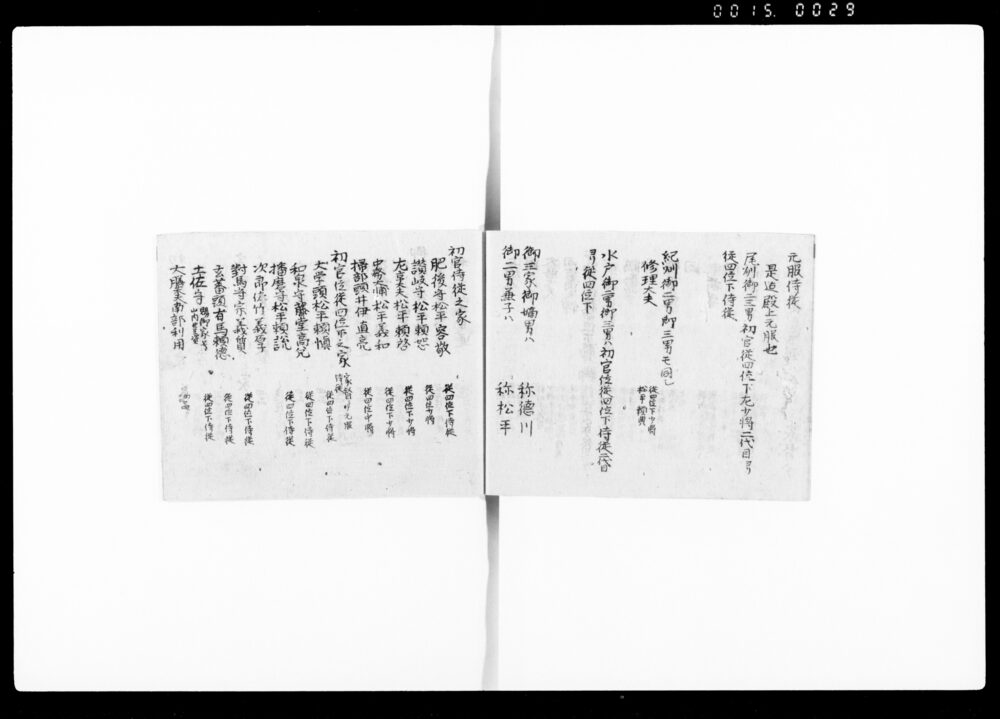 0015. 0029
元服侍従
是迠殿上元服也
尾刕御二三男初官従四位下左少将二代目ヨリ
従四位下侍従
紀刕御二男御三男モ同し
修理大夫
従四位下少将
水戸御二男御三男ハ初官位従四位下侍従二代目
ヨリ従四位下
御三家御嫡男ハ 称徳川
御二男並子ハ 称松平
初官侍従之家
肥後守松平容敬 従四位下侍従
讃岐守松平頼恕 従四位少将
左京大夫松平頼啓 従四位下少将
中務大輔松平義和 従四位下少将
掃部頭井伊直亮 従四位中将
初官位従四位下之家
大学頭松平頼慎 従四位下侍従
和泉守藤堂高兌 従四位下侍従
播磨守松平頼説 従四位下侍従
次郎佐竹義厚
對馬守宗義質 従四位下侍従
玄蕃頭有馬頼徳 従四位下侍従
土佐守 従四位下侍従
大膳大夫南部利用